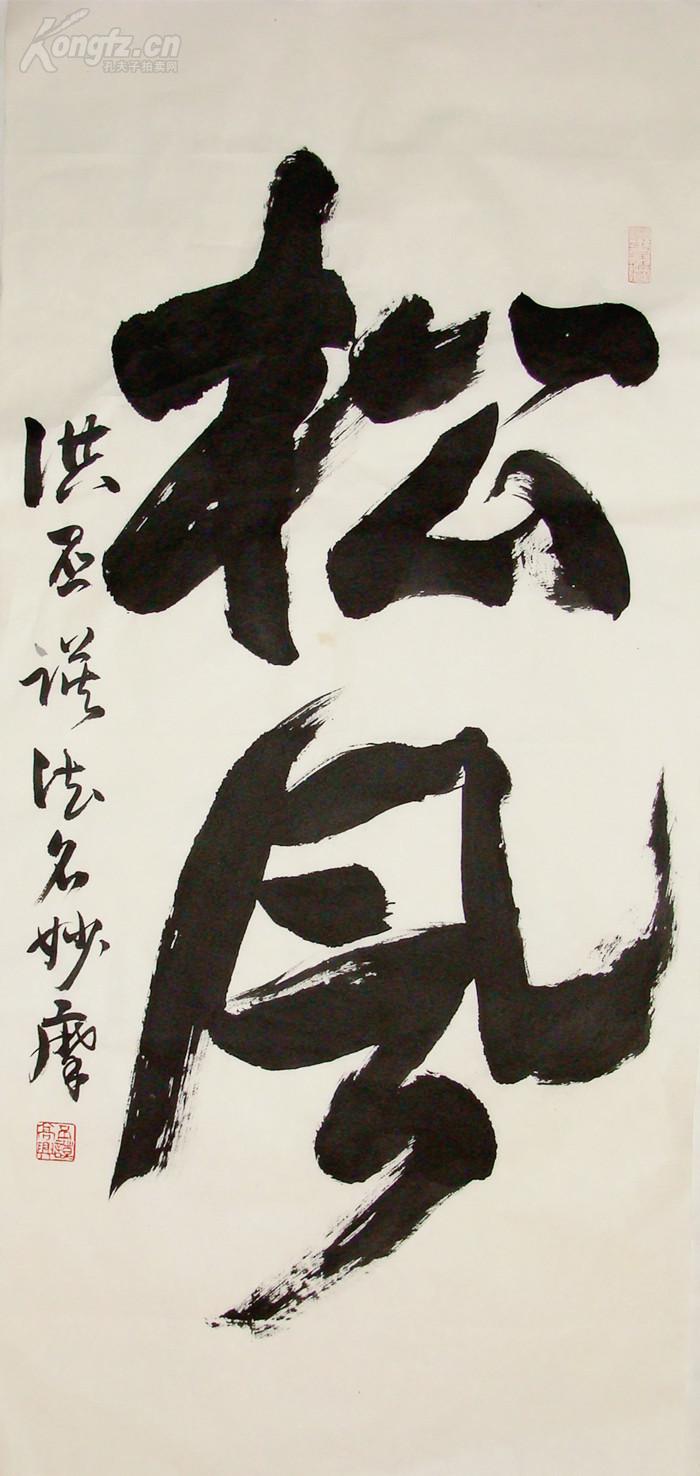 Kongfz.cn
孔夫子拍卖网
松风
洪丕谟法名妙摩